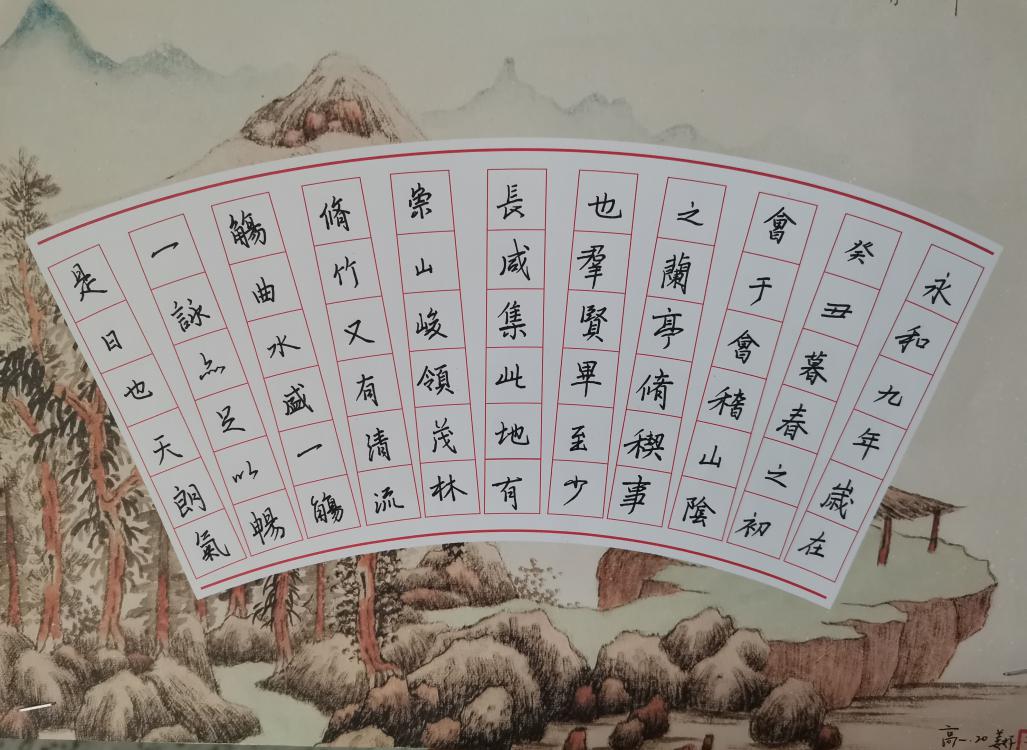 永和九年歲在
癸丑暮春之初
會于會稽山陰
之蘭亭脩稧事
也羣賢畢至少
長咸集此地有
崇山峻領茂林
脩竹又有清流
觴曲水盛一觴
一詠点足以暢
是日也天朗氣
高一.20